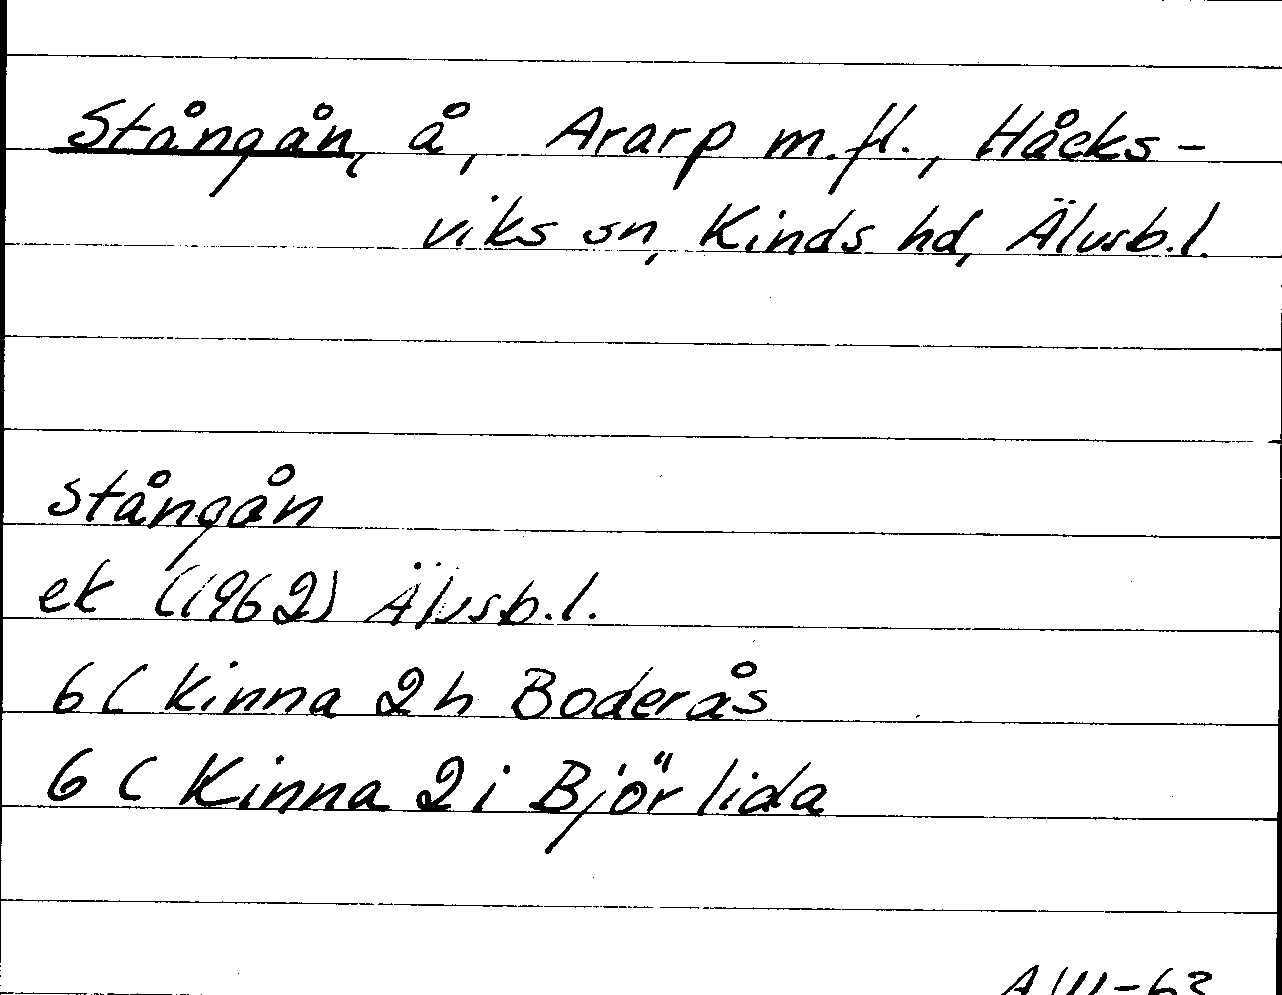 Stångån, å, Ararp m.fl., Håcks-
viks sn, Kinds hd, Älvsb.l.
Stångån
ek (1962) Älvsb.l.
6 C Kinna 2 h Boderås
6 C Kinna 2 i Björlida